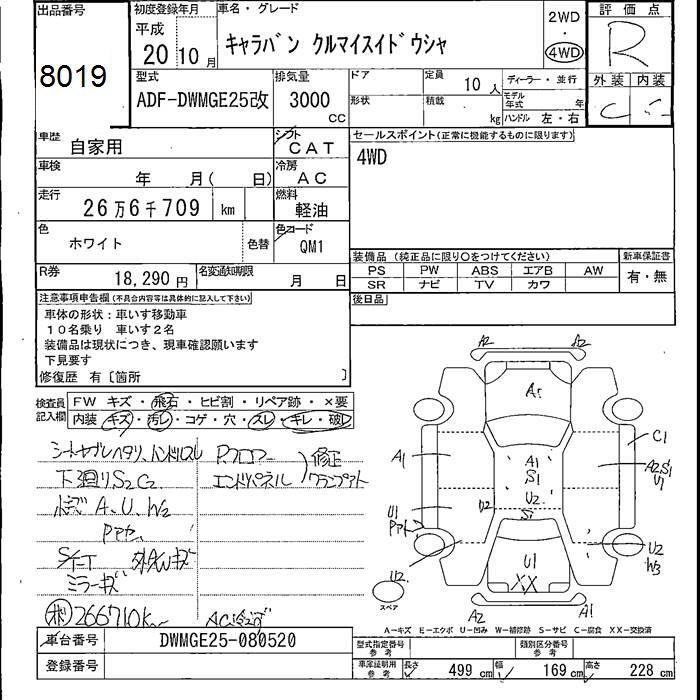 出品番号
8019
初度登録年月
平成
20 10 月
車名・グレード
キャラバン クルマイスイドウシャ
2WD
・
4WD
評価点
R
外装 内装
C C
型式
ADF-DWMGE25改
排気量
3000
CC
ドア
定員
10 人
形状
積載
kg
ディーラー・並行
モデル年式 年
ハンドル 左・右
車歴
自家用
シフト
CAT
車検
年 月( 日)
冷房
AC
走行
26万6千709 km
燃料
軽油
色
ホワイト
色替
色コード
QM1
R券
18,290 円
名変通知期限
月 日
セールスポイント(正常に機能するものに限ります)
4WD
装備品(純正品に限り○をつけてください)
PS PW ABS エアB AW
SR ナビ TV カワ
新車保証書
有・無
後日品
注意事項申告欄(不具合内容等は具体的に記入して下さい)
車体の形状:車いす移動車
10名乗り 車いす2名
装備品は現状につき、現車確認願います
下見要す
修復歴 有〔箇所 〕
検査員記入欄
FW キズ・飛石・ヒビ割・リペア跡・×要
内装 キズ・汚レ・コゲ・穴・スレ・キレ・破レ
シートヤブレヘタリ、ハンドルスレ
下廻りS2C2
A、U、W2
ミラーキズ
266710km
Pフロアー
エンドパネル
修正
AC
A2 A2
A
A1
C1
A1
S1
U2
S1
A2S1
U1
U1
U2
U2
W3
U2
U1
XX
A2 A1
スペア
A-キズ E-エクボ U-凹み W-補修跡 S-サビ C-腐食 XX-交換済
車台番号
DWMGE25-080520
登録番号
型式指定番号
参考
類別区分番号
参考
車庫証明用
参考
長さ 499 cm 幅 169 cm 高さ 228 cm